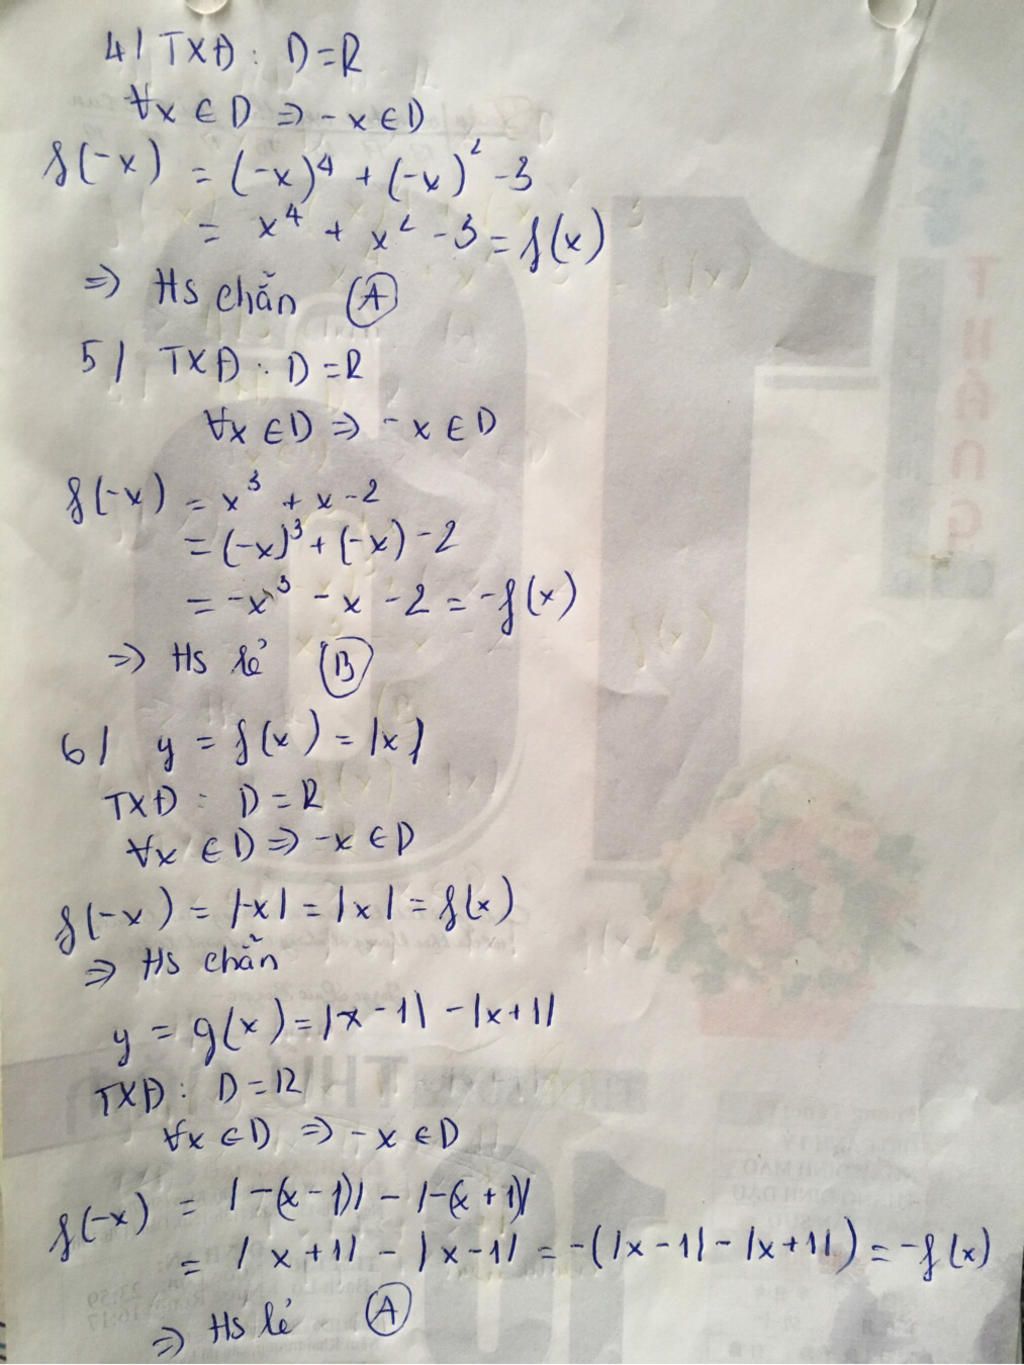 4/ TXĐ: D=R
∀x ∈ D ⇒ -x ∈ D
f(-x) = (-x)⁴ + (-x)² - 3
= x⁴ + x² - 3 = f(x)
⇒ Hs chẵn Ⓐ
5/ TXĐ: D=R
∀x ∈ D ⇒ -x ∈ D
f(-x) = x³ + x - 2
= (-x)³ + (-x) - 2
= -x³ - x - 2 = -f(x)
⇒ Hs lẻ Ⓑ
6/ y = f(x) = |x|
TXĐ: D = R
∀x ∈ D ⇒ -x ∈ D
f(-x) = |-x| = |x| = f(x)
⇒ Hs chẵn
y = g(x) = |x-1| - |x+1|
TXĐ: D = R
∀x ∈ D ⇒ -x ∈ D
f(-x) = |-(x-1)| - |-(x+1)|
= |x+1| - |x-1| = -(|x-1| - |x+1|) = -f(x)
⇒ Hs lẻ Ⓐ